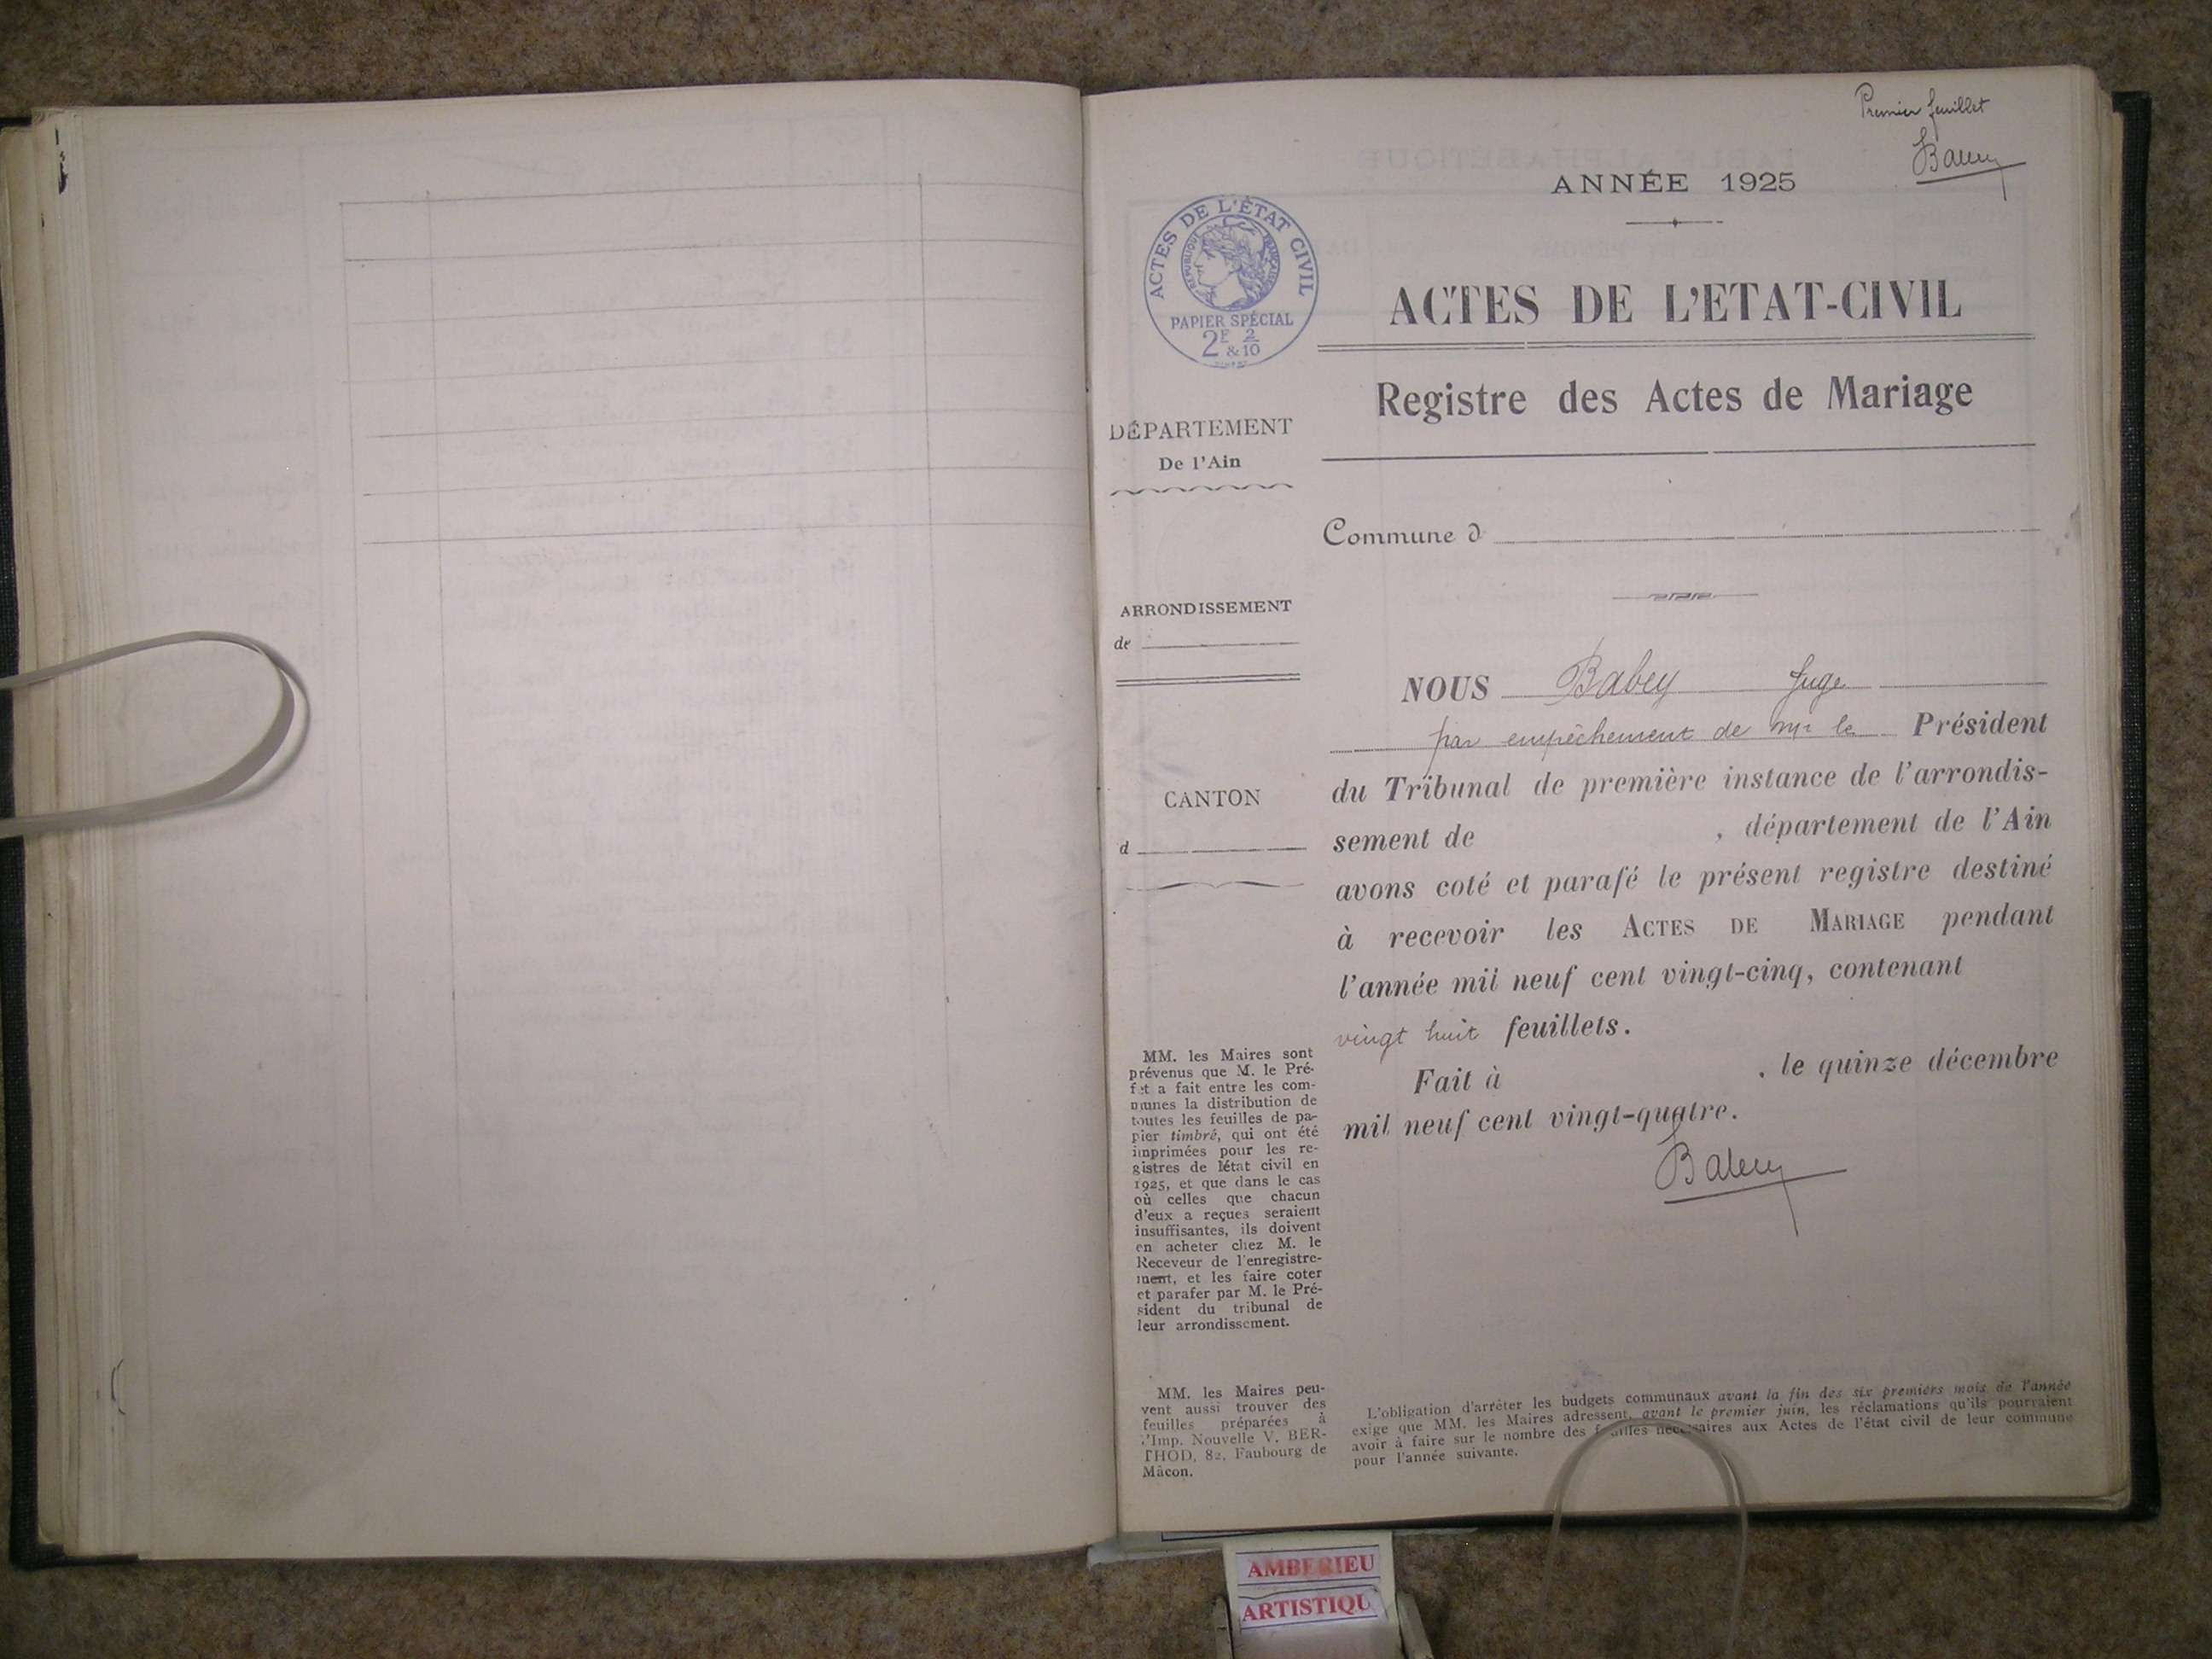 Premier feuillet
Babey
ANNÉE 1925
ACTES DE L'ÉTAT CIVIL
RÉPUBLIQUE FRANÇAISE
PAPIER SPÉCIAL
2E 2
&10
ACTES DE L'ETAT-CIVIL
Registre des Actes de Mariage
DÉPARTEMENT
De l'Ain
Commune d
ARRONDISSEMENT
de
CANTON
d
NOUS Babey Juge
par empêchement de Mr le Président
du Tribunal de première instance de l'arrondis-
sement de , département de l'Ain
avons coté et parafé le présent registre destiné
à recevoir les ACTES DE MARIAGE pendant
l'année mil neuf cent vingt-cinq, contenant
vingt huit feuillets.
Fait à , le quinze décembre
mil neuf cent vingt-quatre.
Babey
MM. les Maires sont
prévenus que M. le Pré-
fet a fait entre les com-
munes la distribution de
toutes les feuilles de pa-
pier timbré, qui ont été
imprimées pour les re-
gistres de létat civil en
1925, et que dans le cas
où celles que chacun
d'eux a reçues seraient
insuffisantes, ils doivent
en acheter chez M. le
Receveur de l'enregistre-
ment, et les faire coter
et parafer par M. le Pré-
sident du tribunal de
leur arrondissement.
MM. les Maires peu-
vent aussi trouver des
feuilles préparées à
l'Imp. Nouvelle V. BER-
THOD, 82, Faubourg de
Mâcon.
L'obligation d'arrêter les budgets communaux avant la fin des six premiers mois de l'année
exige que MM. les Maires adressent, avant le premier juin, les réclamations qu'ils pourraient
avoir à faire sur le nombre des feuilles nécessaires aux Actes de l'état civil de leur commune
pour l'année suivante.
AMBERIEU
ARTISTIQU